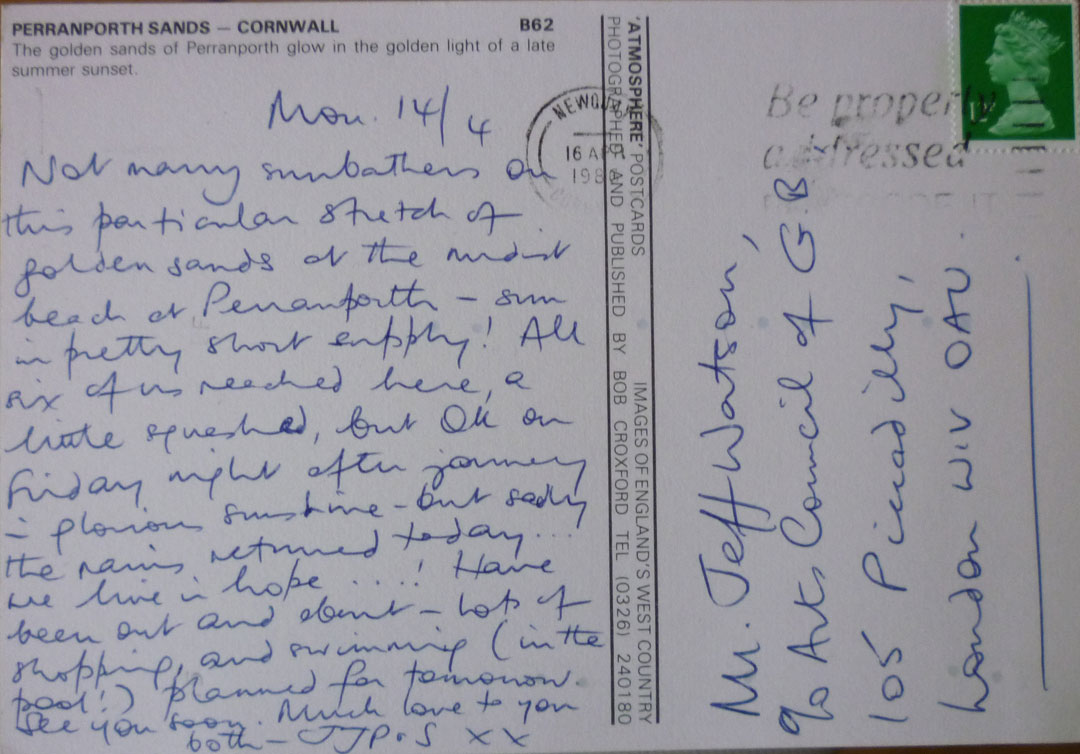 PERRANPORTH SANDS – CORNWALL B62
The golden sands of Perranporth glow in the golden light of a late
summer sunset.
Mon. 14/4
Not many sunbathers on
this particular stretch of
golden sands at the nudist
beach at Perranporth – sun
in pretty short supply! All
six of us reached here, a
little squashed, but OK on
Friday night after journey
in glorious sunshine – but sadly
the rains returned today...
we live in hope ....! Have
been out and about – lots of
shopping, and swimming (in the
pool!) planned for tomorrow.
See you soon. Much love to you
both – JJP+S XX
'ATMOSPHERE' POSTCARDS IMAGES OF ENGLAND'S WEST COUNTRY
PHOTOGRAPHED AND PUBLISHED BY BOB CROXFORD TEL (0326) 240180
16 AP
198
Be properly
addressed
Mr. Jeff Watson,
c/o Arts Council of G.B.,
105 Piccadilly,
London W1V 0AU.